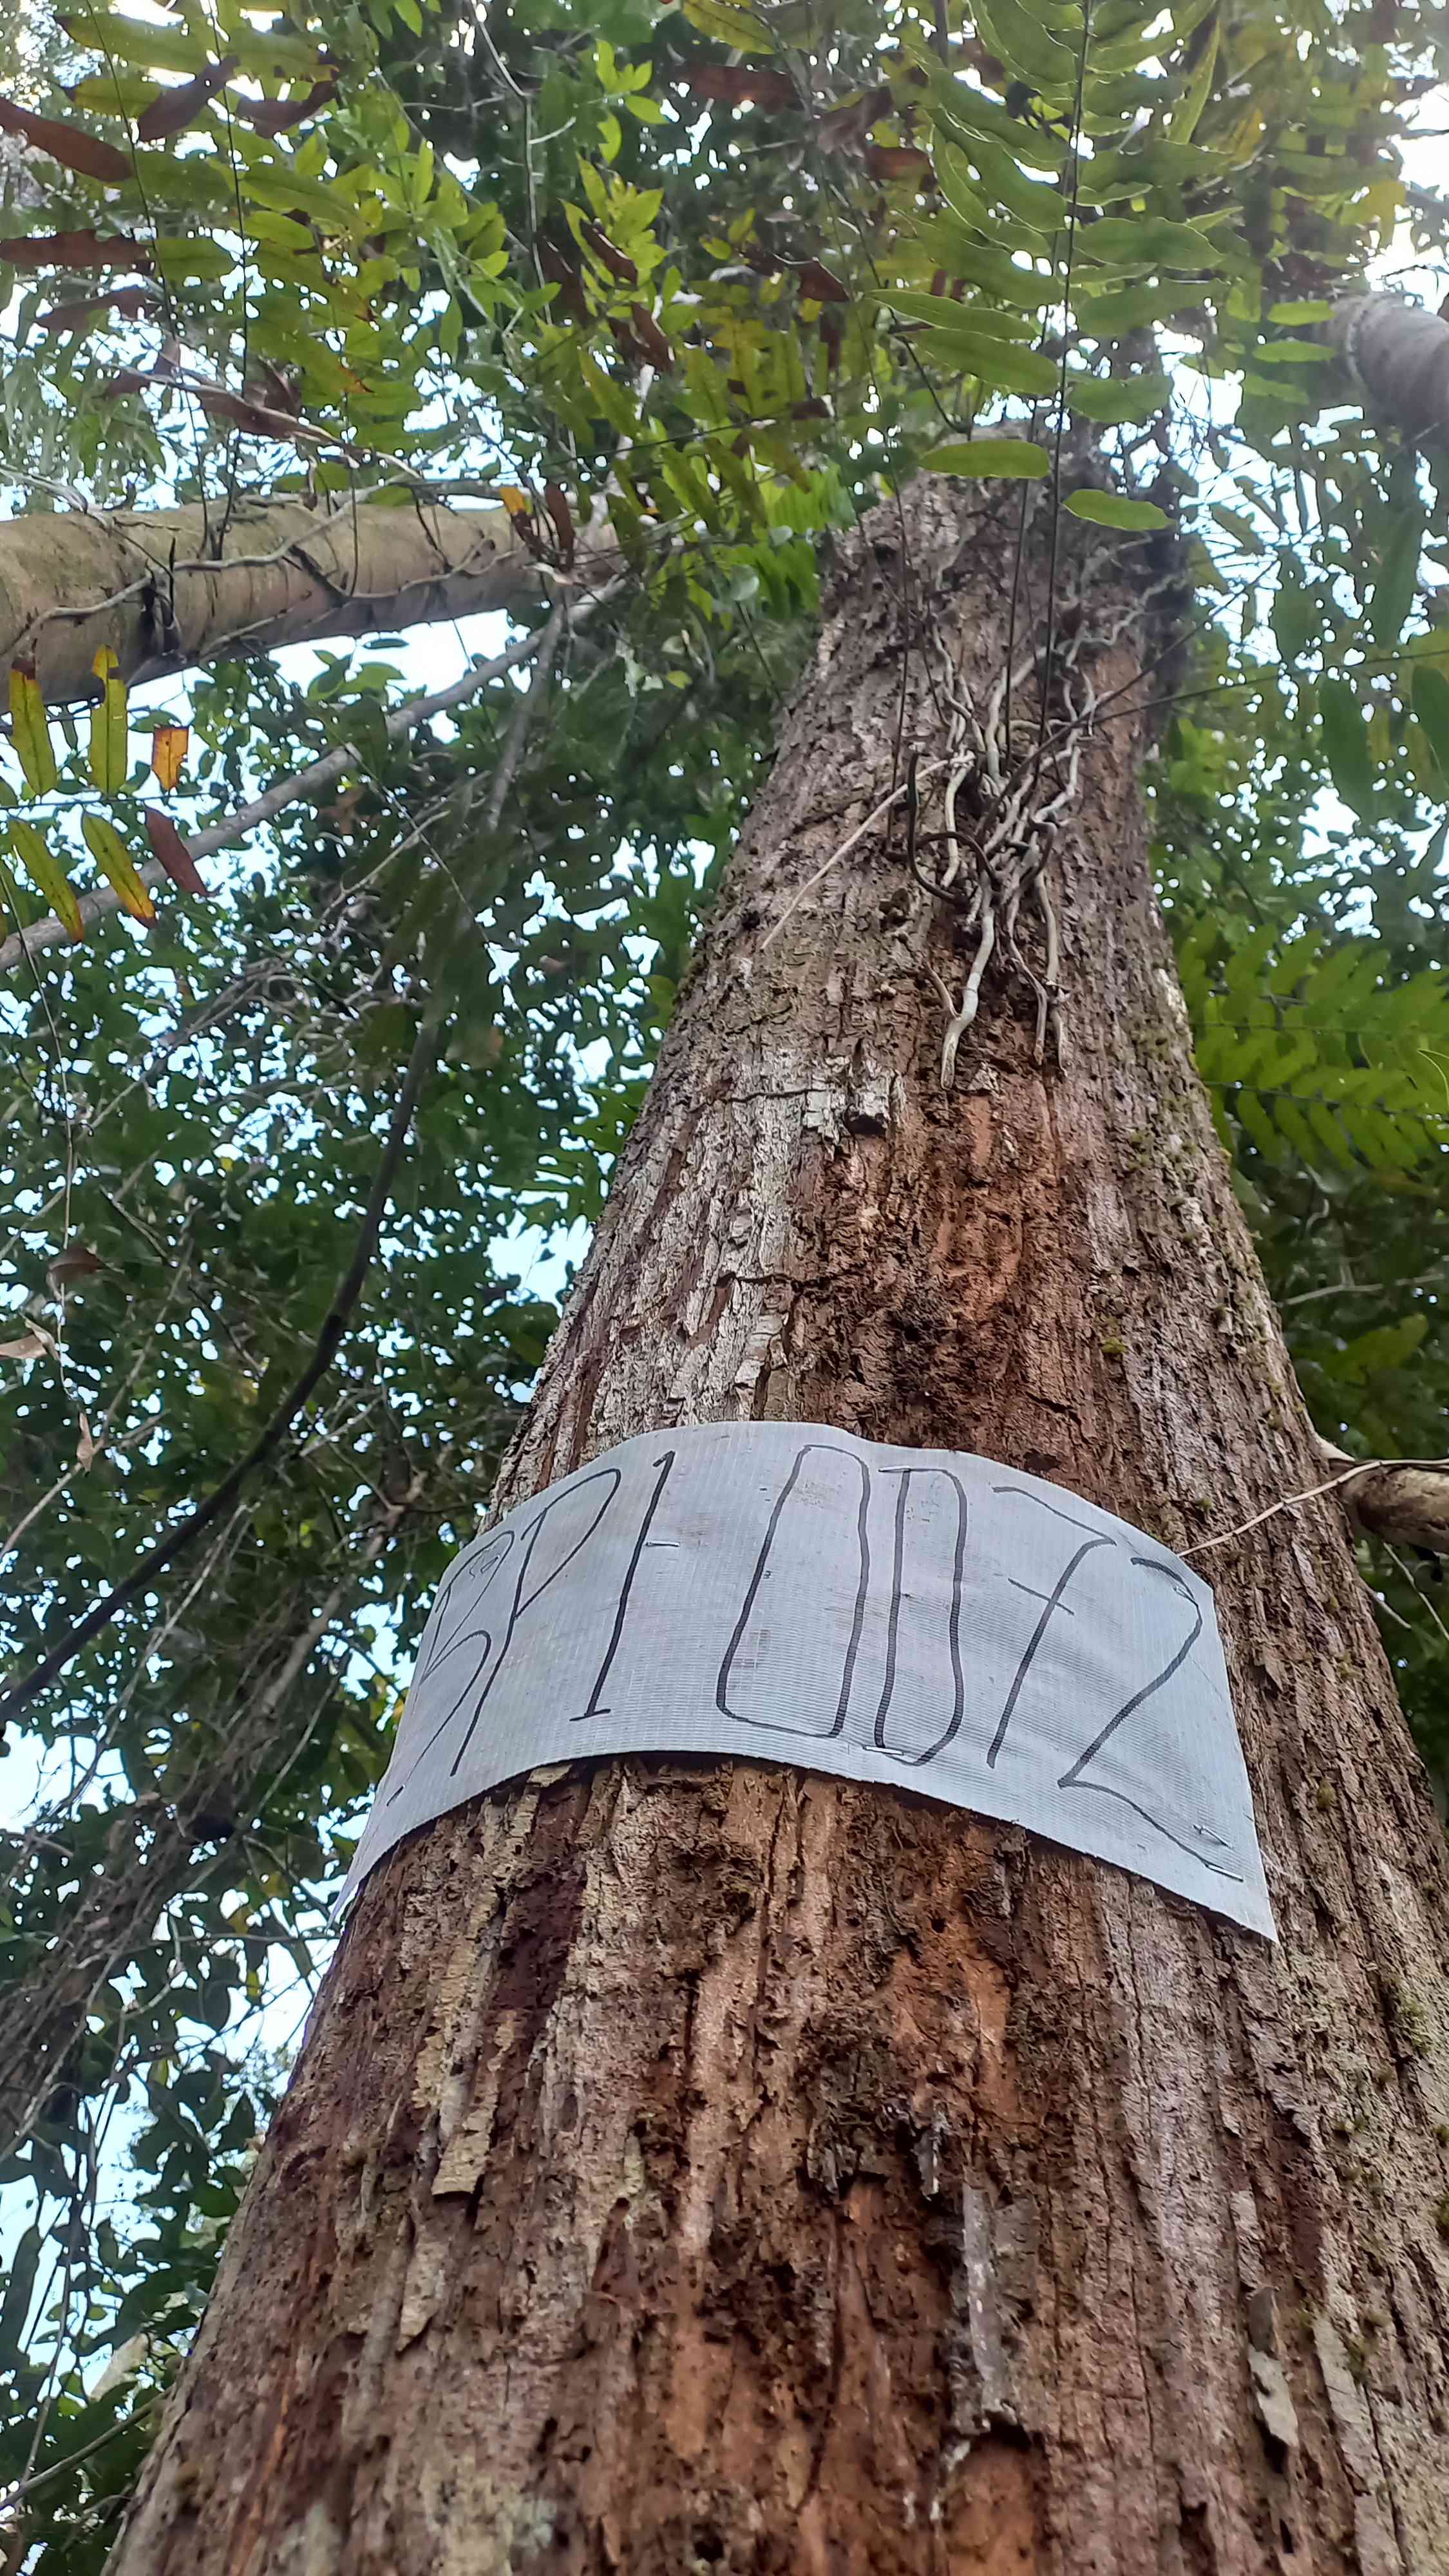 BP1 0072